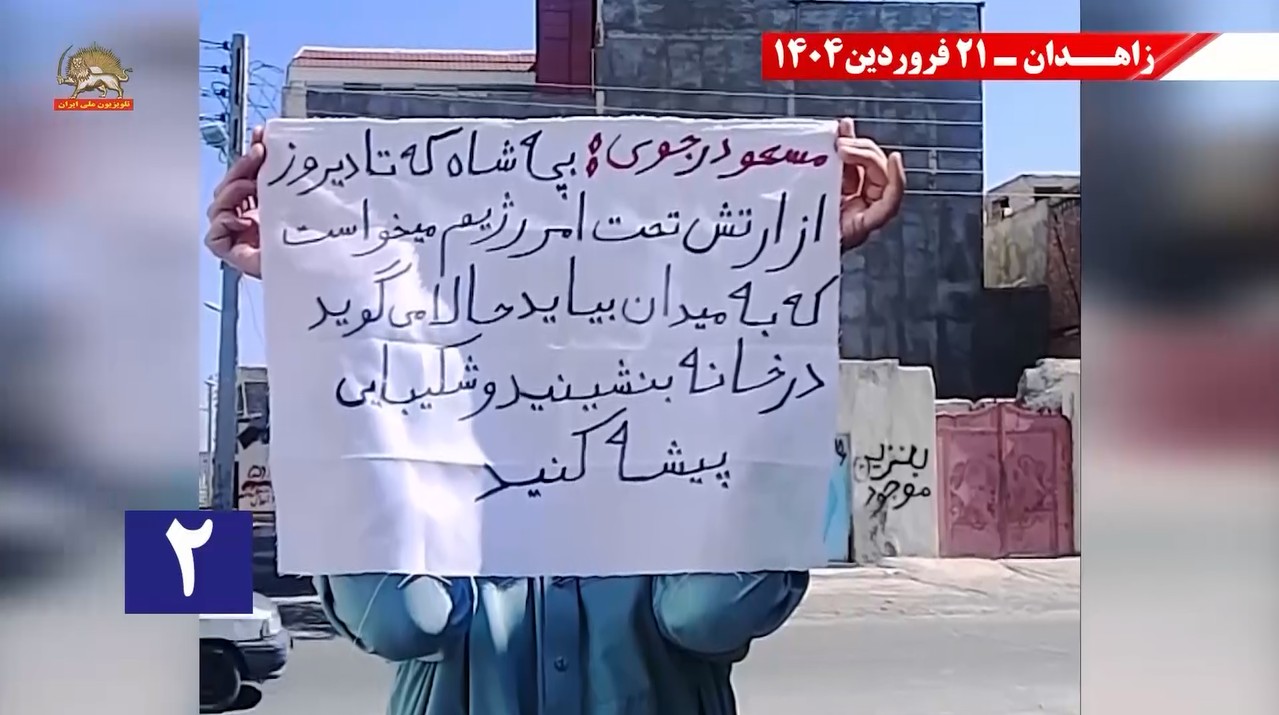 زاهـدان ـ ۲۱ فروردین ۱۴۰۴
تلویزیون ملی ایران
مسعود رجوی: بچه شاه که تا دیروز
از ارتش تحت امر رژیم میخواست
که به میدان بیاید حالا می گوید
در خانه بنشینید و شکیبایی
پیشه کنید
بنزین
موجود
۲